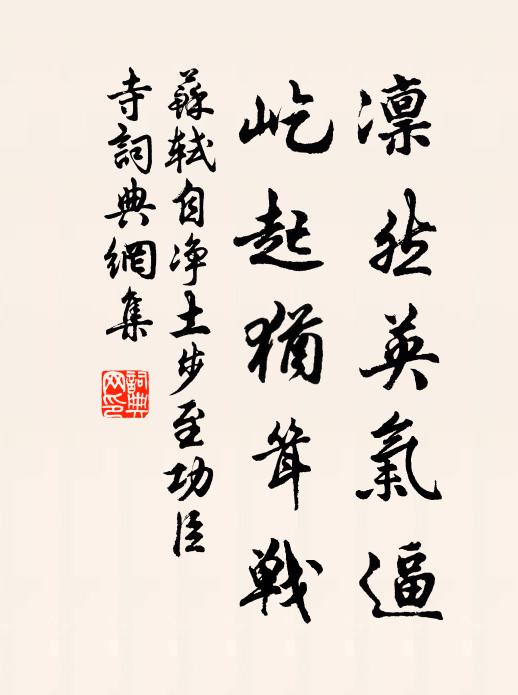 凛然英氣逼
屹起猶聳戰
蘇軾自净土步至功臣
寺詞典網集
詞典
网印